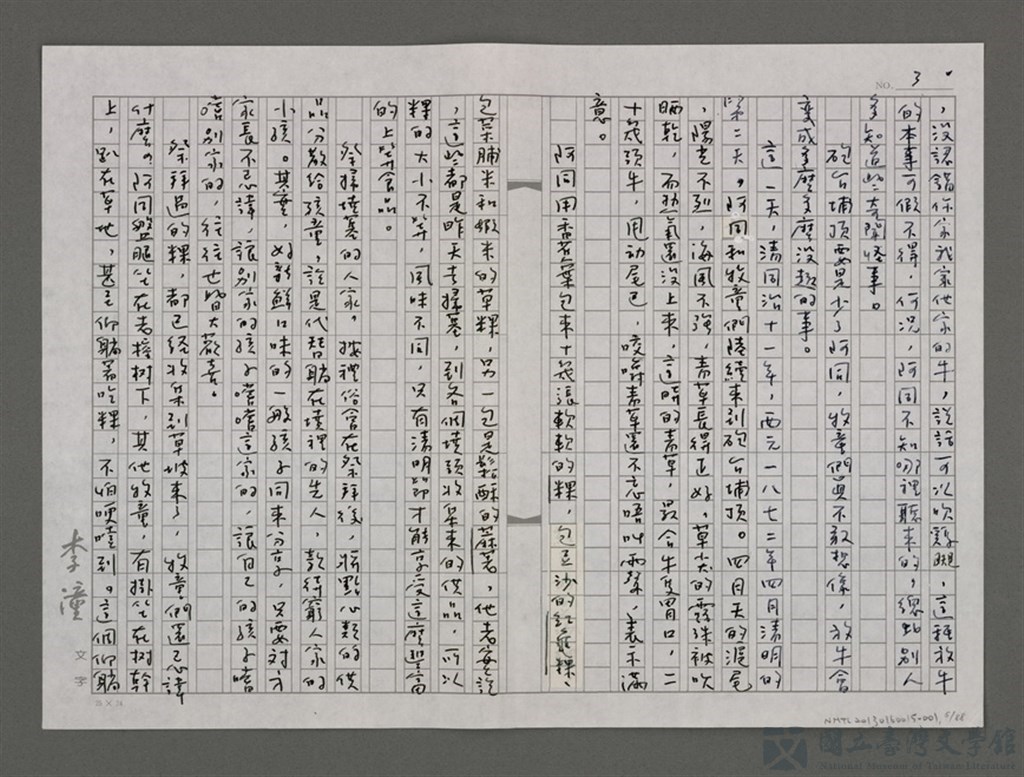 NO. 3
，沒認錯你家我家他家的牛，說話可以吹飛龍，這種放牛
的本事可假不得，何況，阿同不知哪裡聽來的，總比別人
多知道些奇聞怪事。
砲台埔頂要是少了阿同，牧童們還不敢想像，放牛會
變成多麼多麼沒趣的事。
這一天，清同治十一年，西元一八七二年四月清明的
第二天。阿同和牧童們陸續來到砲台埔頂。四月天的混尾
，陽光不烈，海風不強，青草長得正好，草尖的露珠被吹
晒乾，而熱氣還沒上來，這時的青草，最合牛隻胃口，二
十幾頭牛，甩動尾巴，咬嚼青草還不忘唔叫兩聲，表示滿
意。
阿同用香蕉葉包來十幾張軟軟的粿，包豆沙的紅龜粿、
包菜脯米和蝦米的草粿，另一包是鬆酥的蔴荖，他老實說
，這些都是昨天去掃墓，到各個墳頭收集來的供品，所以
粿的大小不等，風味不同，只有清明節才能享受這麼豐富
的上等食品。
祭掃墳墓的人家，按禮俗會在祭拜後，將點心類的供
品分散給孩童，說是代替躺在墳裡的先人，款待窮人家的
小孩。其實，好新鮮口味的一般孩子同來分享，只要對方
家長不忌諱，讓別家的孩子嚐嚐這家的，讓自己的孩子嚐
嚐別家的，往往也皆大歡喜。
祭拜過的粿，都已經收集到草坡來了，牧童們還忌諱
什麼。阿同盤腿坐在老榕樹下，其他牧童，有掛坐在樹幹
上，趴在草地，甚至仰躺著吃粿，不怕哽噎到。這個仰躺
李潼
文字
25 × 24
NMTL20130160015-001, 4/88
國立臺灣文學館
National Museum of Taiwan Literature